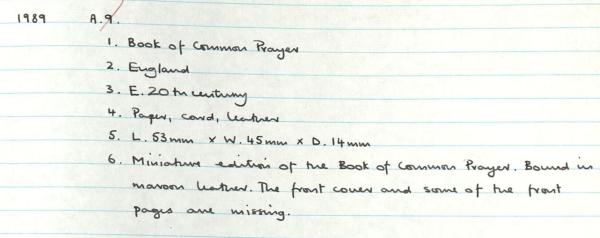 1989 A.9.
1. Book of Common Prayer
2. England
3. E. 20th century
4. Paper, card, leather
5. L. 53mm x W. 45mm x D. 14mm
6. Miniature edition of the Book of Common Prayer. Bound in
maroon leather. The front cover and some of the front
pages are missing.